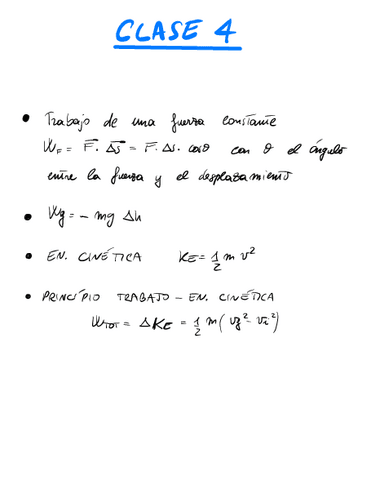 CLASE 4
• Trabajo de una fuerza constante
W_F = F⃗ · Δs⃗ = F · Δs · cosθ con θ el ángulo
entre la fuerza y el desplazamiento
• Wg = - mg Δh
• EN. CINÉTICA KE = 1/2 m v²
• PRINCÍPIO TRABAJO - EN. CINÉTICA
W_TOT = ΔKE = 1/2 m (vf² - vi²)